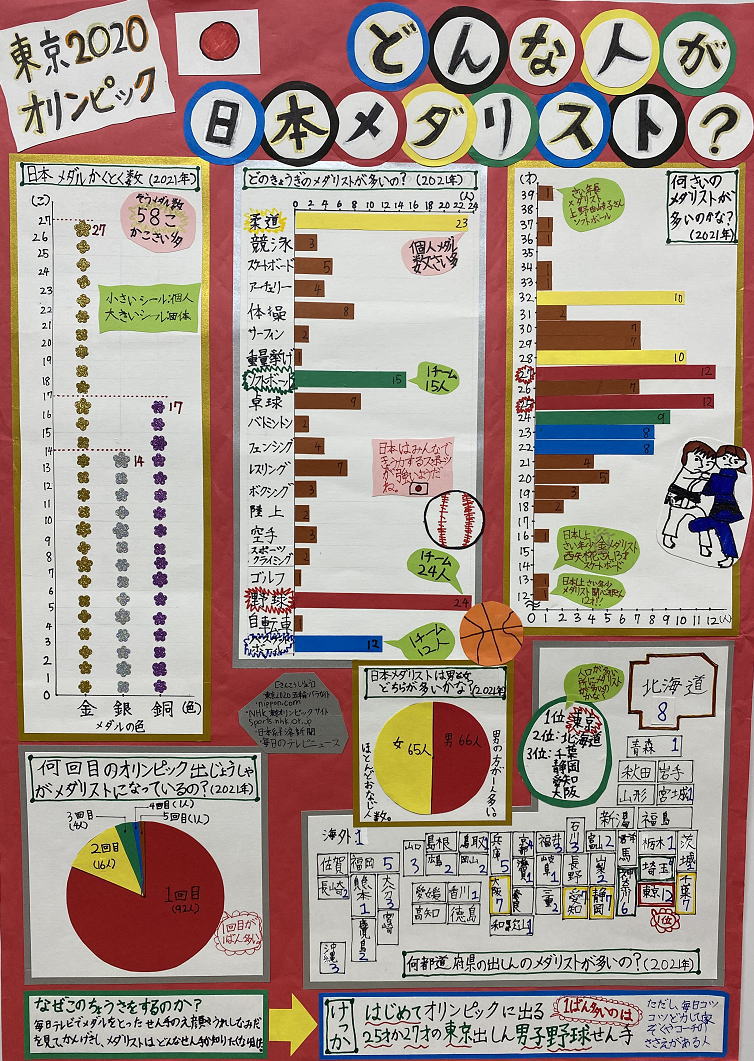 東京2020
オリンピック
どんな人が
日本メダリスト?
日本メダルかくとく数 (2021年)
(こ)
そうメダル数
58こ
かこさい多
小さいシール:個人
大きいシール:団体
27
26
25
24
23
22
21
20
19
18
17
16
15
14
13
12
11
10
9
8
7
6
5
4
3
2
1
0
27
14
17
金 銀 銅 (色)
メダルの色
どのきょうぎのメダリストが多いの? (2021年)
(人)
0 2 4 6 8 10 12 14 16 18 20 22 24
柔道 23
競泳 3
スケートボード 5
アーチェリー 4
体操 8
サーフィン 2
重量挙げ 1
ソフトボール 15
卓球 9
バドミントン 2
フェンシング 4
レスリング 7
ボクシング 3
陸上 2
空手 3
スポーツクライミング 2
ゴルフ 1
野球 24
自転車 1
バスケットボール 12
個人メダル
数さい多
1チーム
15人
日本はみんなで
きょう力するスポーツ
が強いようだ
ね。
1チーム
24人
1チーム
12人
(才)
何さいの
メダリストが
多いのかな?
(2021年)
さい年長
メダリスト
上野由岐子さん
ソフトボール
39 1
38
37 1
36 1
35
34 1
33 1
32 10
31 2
30 7
29 7
28 10
27 12
26 7
25 12
24 9
23 8
22 8
21 4
20 5
19 3
18 2
17
16 1
15
14
13 1
12 1
0 1 2 3 4 5 6 7 8 9 10 11 12(人)
日本史上
さい年少金メダリスト
西矢椛さん13才
スケートボード
日本史上さい年少
メダリスト 開心那さん
12才!!
[さんこうしりょう]
・東京2020五輪・パラサイト
・nippon.com
・NHK 東京オリンピックサイト
sports.nhk.or.jp
・日本経済新聞
・毎日のテレビニュース
日本メダリストは男と女
どちらが多いかな? (2021年)
女 65人
男 66人
男の方が一人多い。
ほとんどおなじ人数。
人口が多い
所にメダリスト
が多いの
かな?
1位:東京
2位:北海道
3位:千葉
静岡
愛知
大阪
何回目のオリンピック出じょうしゃ
がメダリストになっているの? (2021年)
1回目
(92人)
2回目
(16人)
3回目
(4人)
4回目(1人)
5回目(1人)
1回目が
1ばん多い
北海道
8
青森 1
秋田 岩手
山形 宮城1
新潟 福島
海外1
佐賀 福岡 5
長崎2 熊本1 大分3
宮崎
鹿児島2
沖縄3
山口3 島根 鳥取1
広島2 岡山2
兵庫5
愛媛 香川1
高知 徳島
京都4 滋賀1
大阪7 奈良
和歌山1
福井3 石川3 富山2
岐阜1 長野 山梨2
三重2 愛知7 静岡7
群馬 栃木1 茨城
埼玉7
神奈川6 東京12 千葉7
1位
何都道府県の出しんのメダリストが多いの? (2021年)
なぜこのちょうさをするのか?
毎日テレビでメダルをとったせん手のえ顔やうれしなみだ
を見てかんげきし、メダリストはどんなせん手か知りたくなったから
けっか
はじめてオリンピックに出る 1ばん多いのは
25才か27才の東京出しん男子野球せん手
ただし、毎日コツ
コツど力して家
ぞくやコーチの
ささえがある人